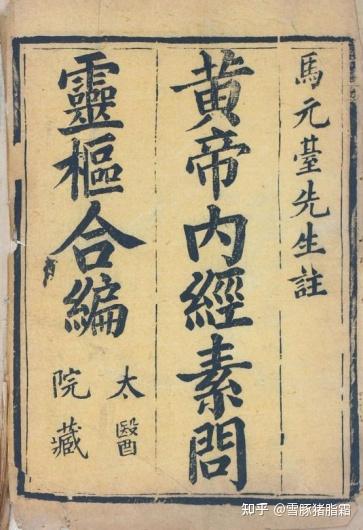 馬元臺先生註
黃帝內經素問
靈樞合編
太醫
院藏
知乎 @雪豚猪脂霜